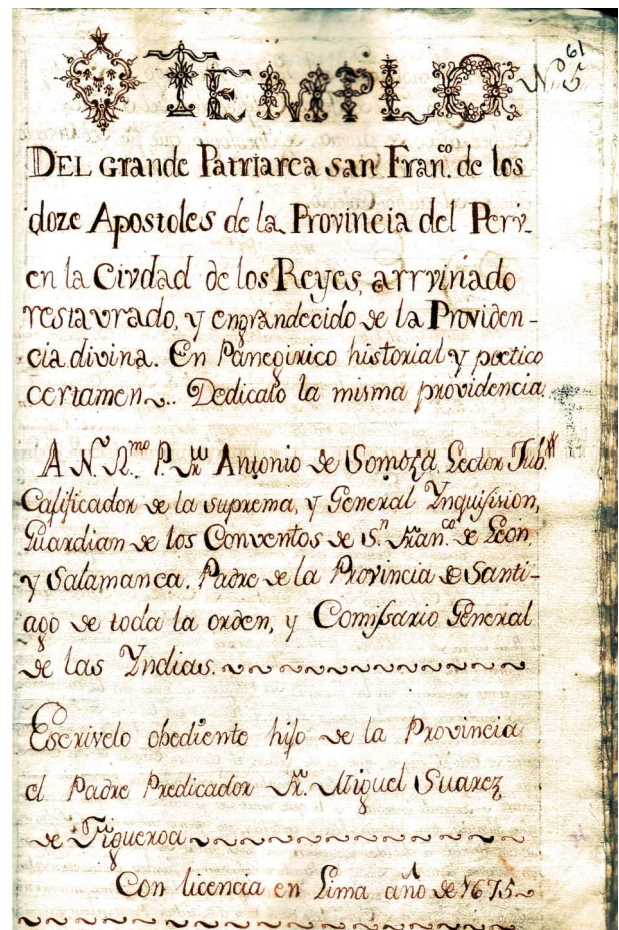 TEMPLO
Nº 5
61
DEL Grande Patriarca san Fran.co de los
doze Apostoles de la Provincia del Perv.
en la Civdad de los Reyes, arrvinado
restavrado, y engrandecido de la Providen-
cia divina. En Panegirico historial y poetico
certamen. Dedicalo la misma providencia.
A N. R.mo P. Fr. Antonio de Somoza, Lector Jub.
Calificador de la suprema, y General Ynquisision,
Guardian de los Conventos de S.n Fran.co de Leon,
y Salamanca. Padre de la Provincia de Santi-
ago de toda la orden, y Comissario General
de las Yndias.
Escrivelo obediente hijo de la Provincia
el Padre Predicador Fr. Miguel Suarez
de Figueroa
Con licencia en Lima año de 1675